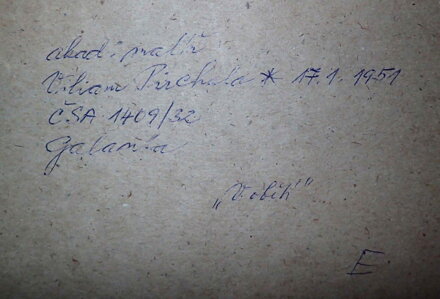 akad. maliř
Viliam Pirchala * 17. 1. 1951
ČSA 1409/32
Galanta
E